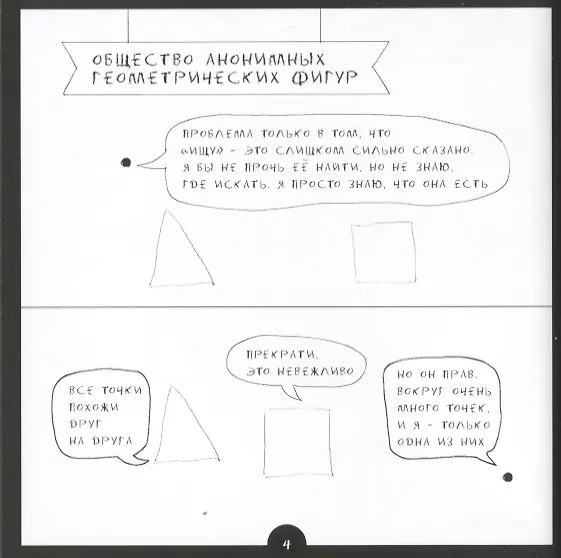 ОБЩЕСТВО АНОНИМНЫХ
ГЕОМЕТРИЧЕСКИХ ФИГУР
ПРОБЛЕМА ТОЛЬКО В ТОМ, ЧТО
«ИЩУ» - ЭТО СЛИШКОМ СИЛЬНО СКАЗАНО.
Я БЫ НЕ ПРОЧЬ ЕЁ НАЙТИ, НО НЕ ЗНАЮ,
ГДЕ ИСКАТЬ. Я ПРОСТО ЗНАЮ, ЧТО ОНА ЕСТЬ
ВСЕ ТОЧКИ
ПОХОЖИ
ДРУГ
НА ДРУГА
ПРЕКРАТИ,
ЭТО НЕВЕЖЛИВО
НО ОН ПРАВ.
ВОКРУГ ОЧЕНЬ
МНОГО ТОЧЕК,
И Я - ТОЛЬКО
ОДНА ИЗ НИХ
4